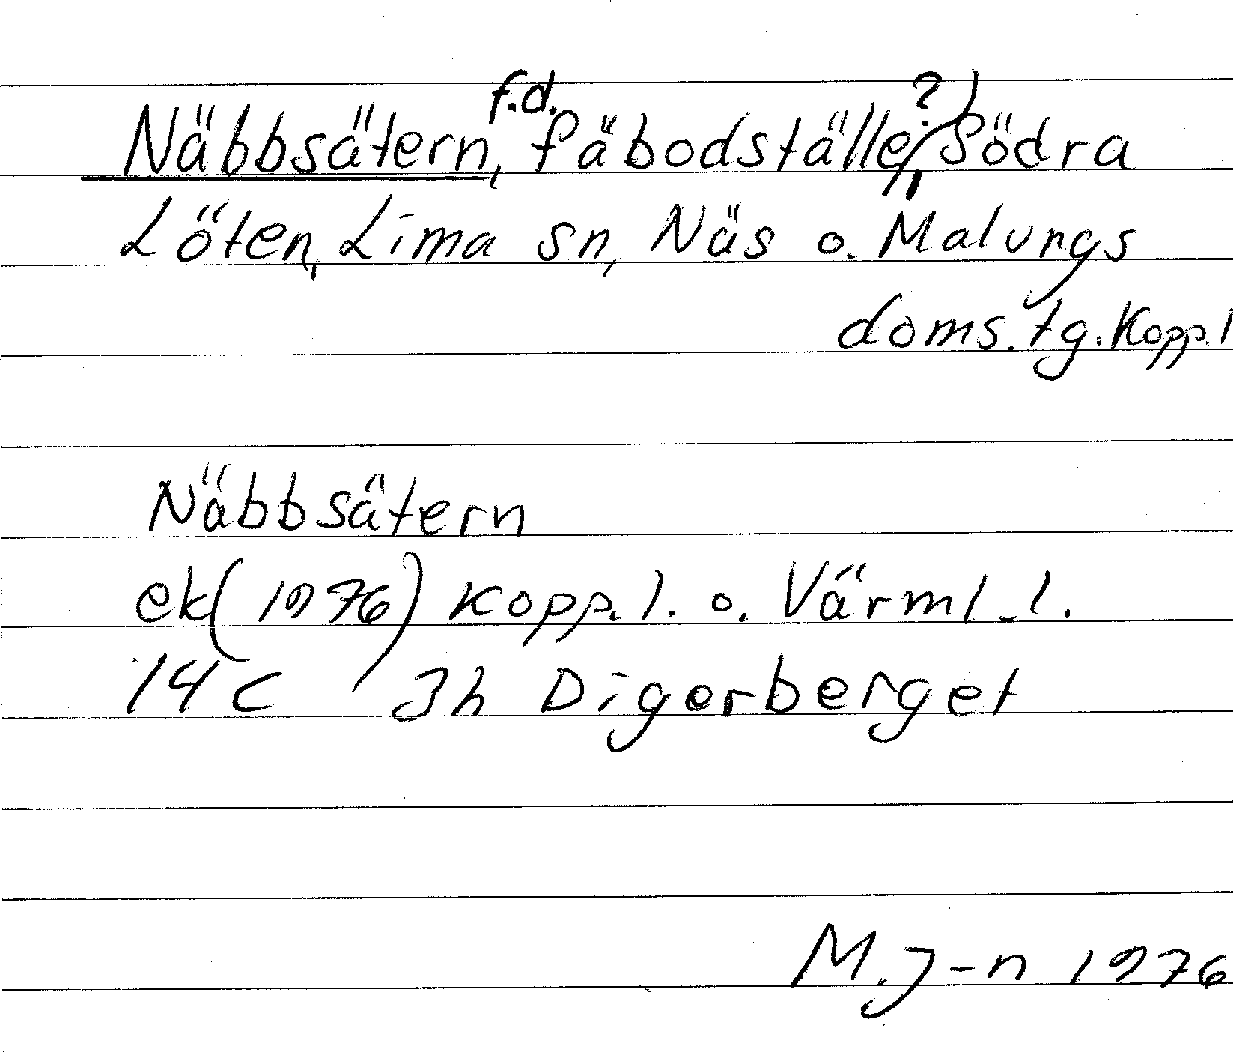 Näbbsätern, f.d. fäbodställe(?), Södra
Löten, Lima sn, Näs o. Malungs
doms. tg. Kopp. l
Näbbsätern
ek (1976) Kopp. l. o. Värml. l.
14 C 3h Digerberget
M. J-n 1976